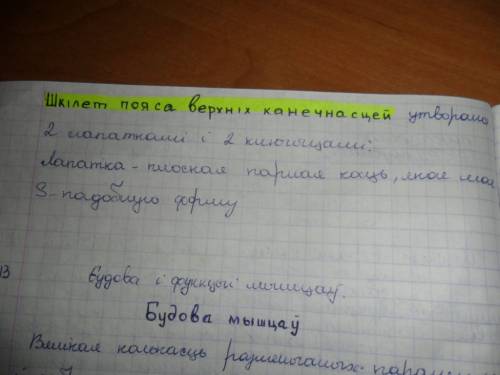 Шкілет пояса верхніх канечнасцей утворано
2 лапаткамі і 2 ключыцамі:
Лапатка - плоская парная косць, якая мае
S-падобную форму
В
Будова і функцыі мышцаў.
Будова мышцаў
Вялікая колькасць